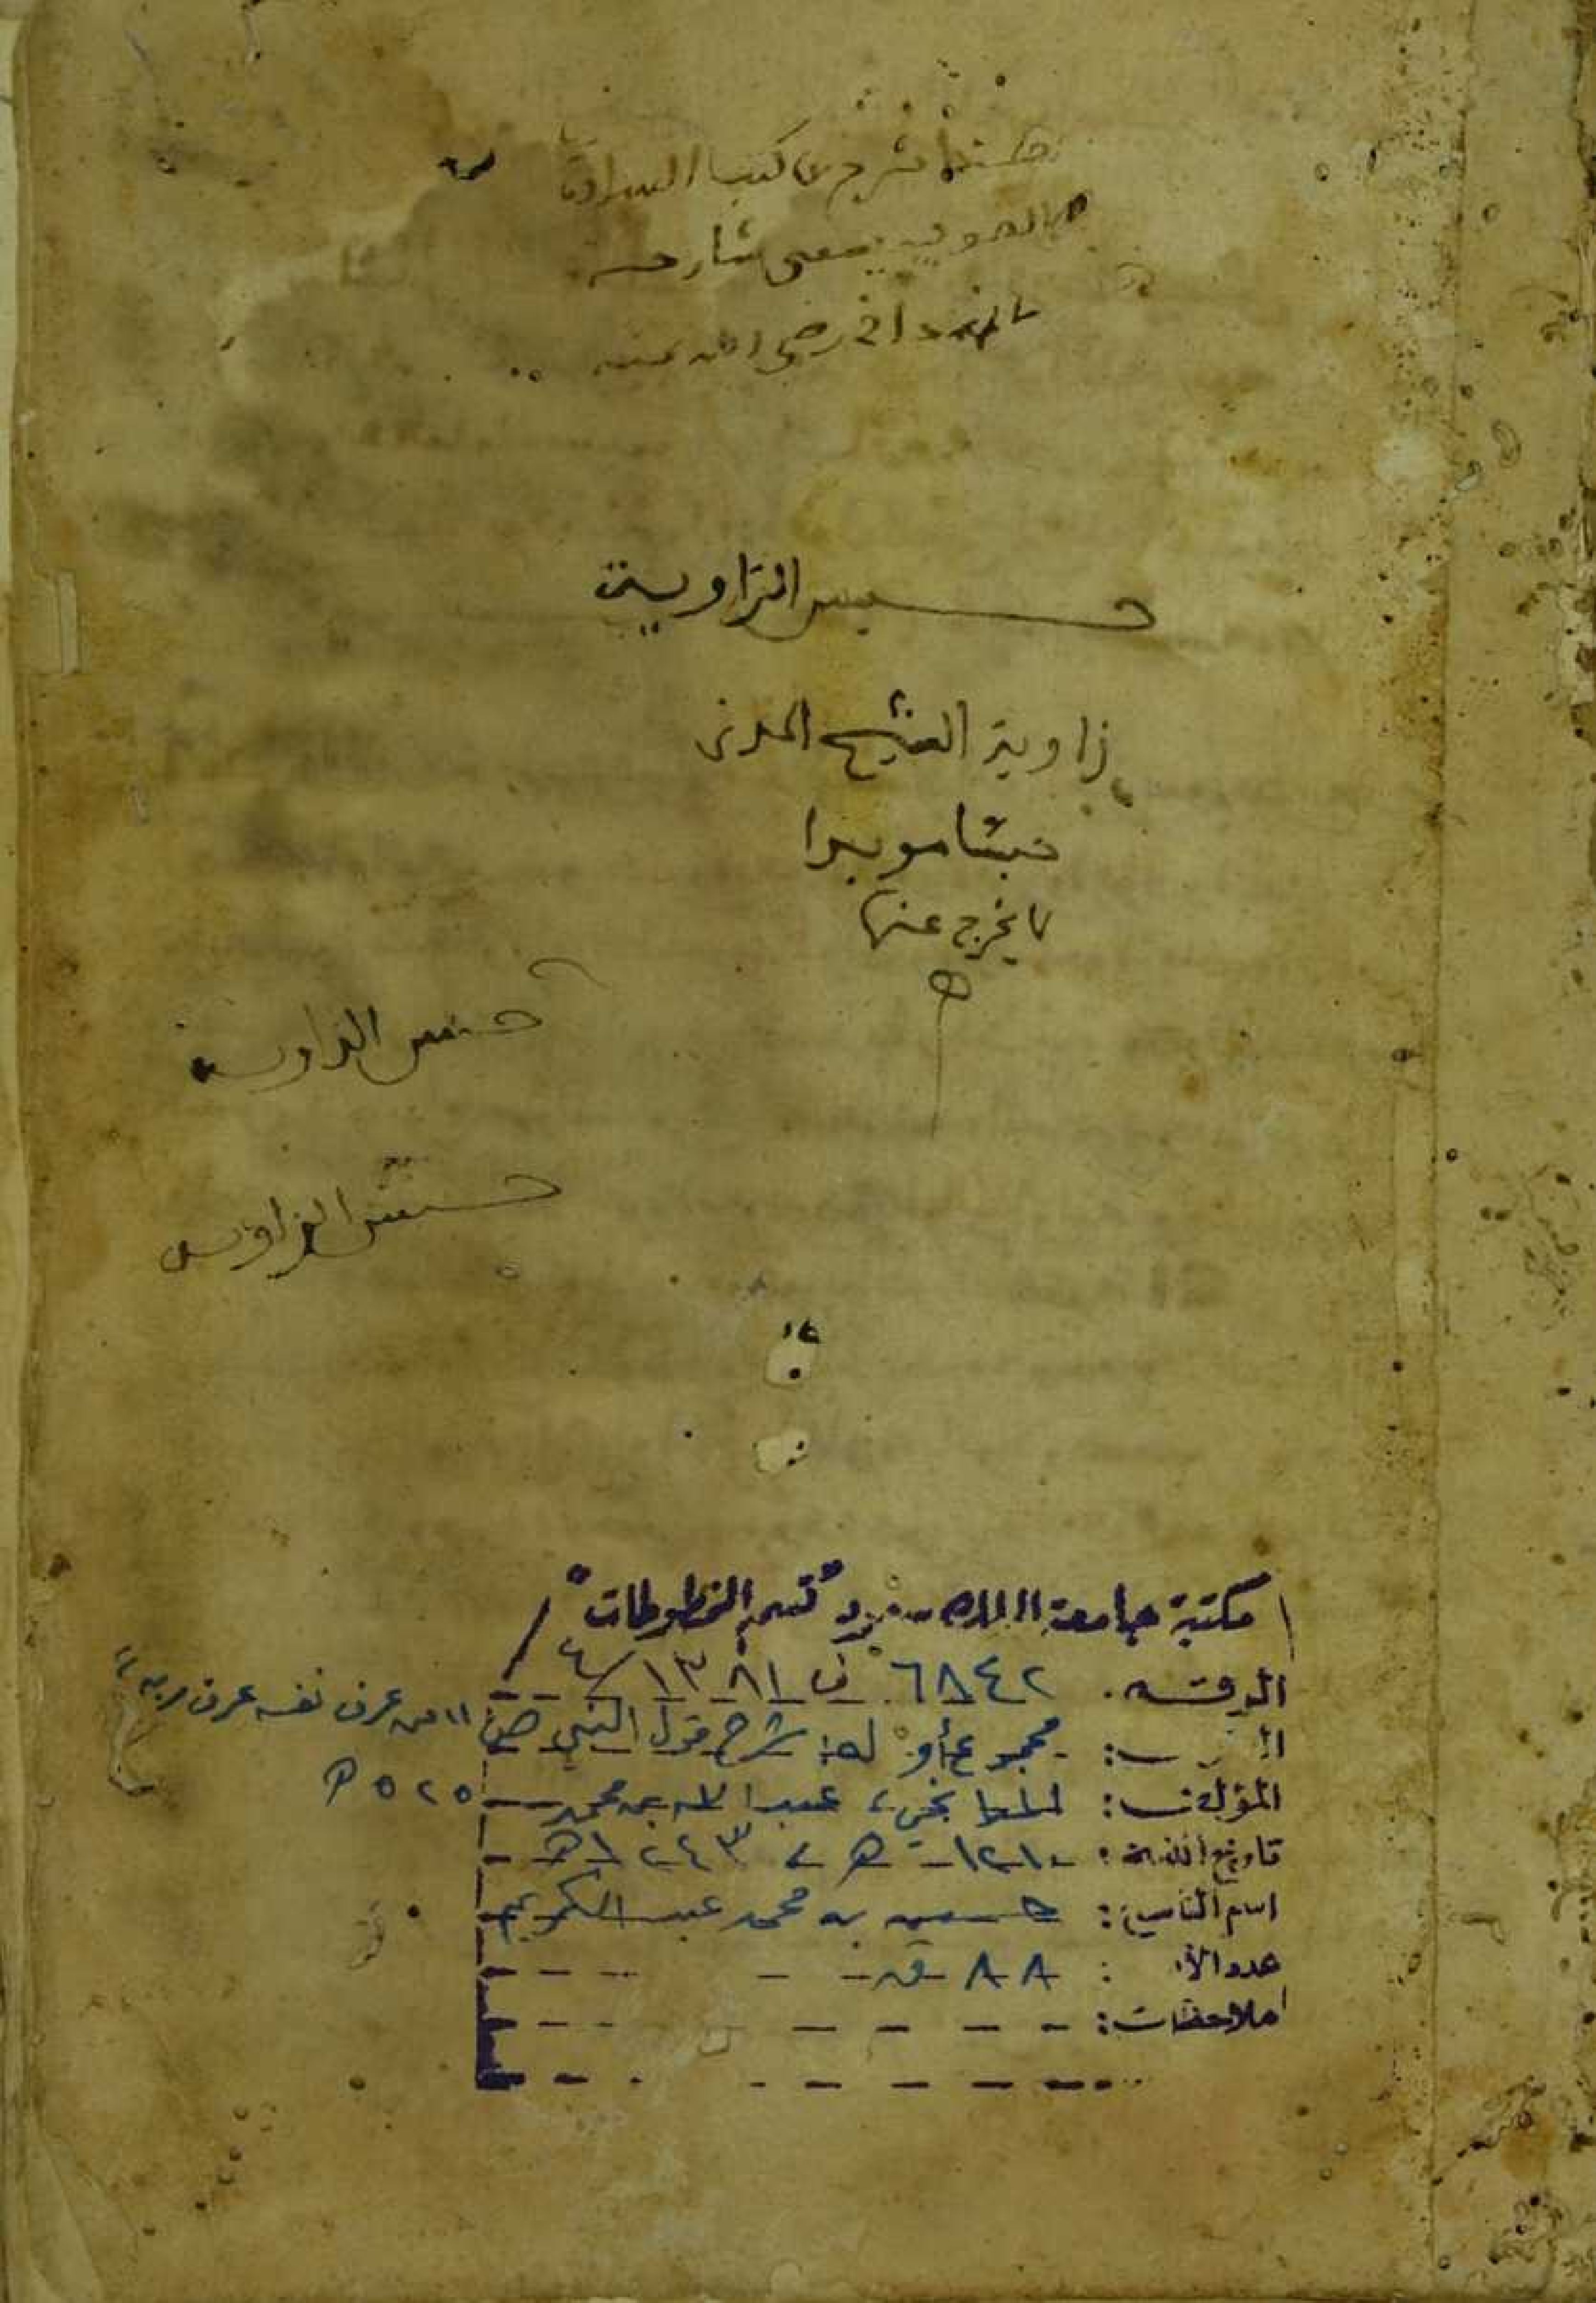 هذا شرح من كتب السادة
الصوفيه
رضي الله عنه
حبس الزاوية
زاوية الشيخ المدني
حبسًا موبدا
لا يخرج عنها
حبس الزاوية
حبس الزاوية
مكتبة جامعة الملك سعود "قسم المخطوطات"
الرقم: ٦٨٤٢ ف ١٣٨١/٤
العنوان: مجموع أوله: شرح قول النبي ص "من عرف نفسه عرف ربه"
المؤلف: عبد الله بن محمد - ٥٢٥ هـ
تاريخ النسخ: ١٢١٠ هـ، ١٢٤٣ هـ
اسم الناسخ: حسين بن محمد عبد الكريم
عدد الأوراق: ٨٨ ق
ملاحظات: